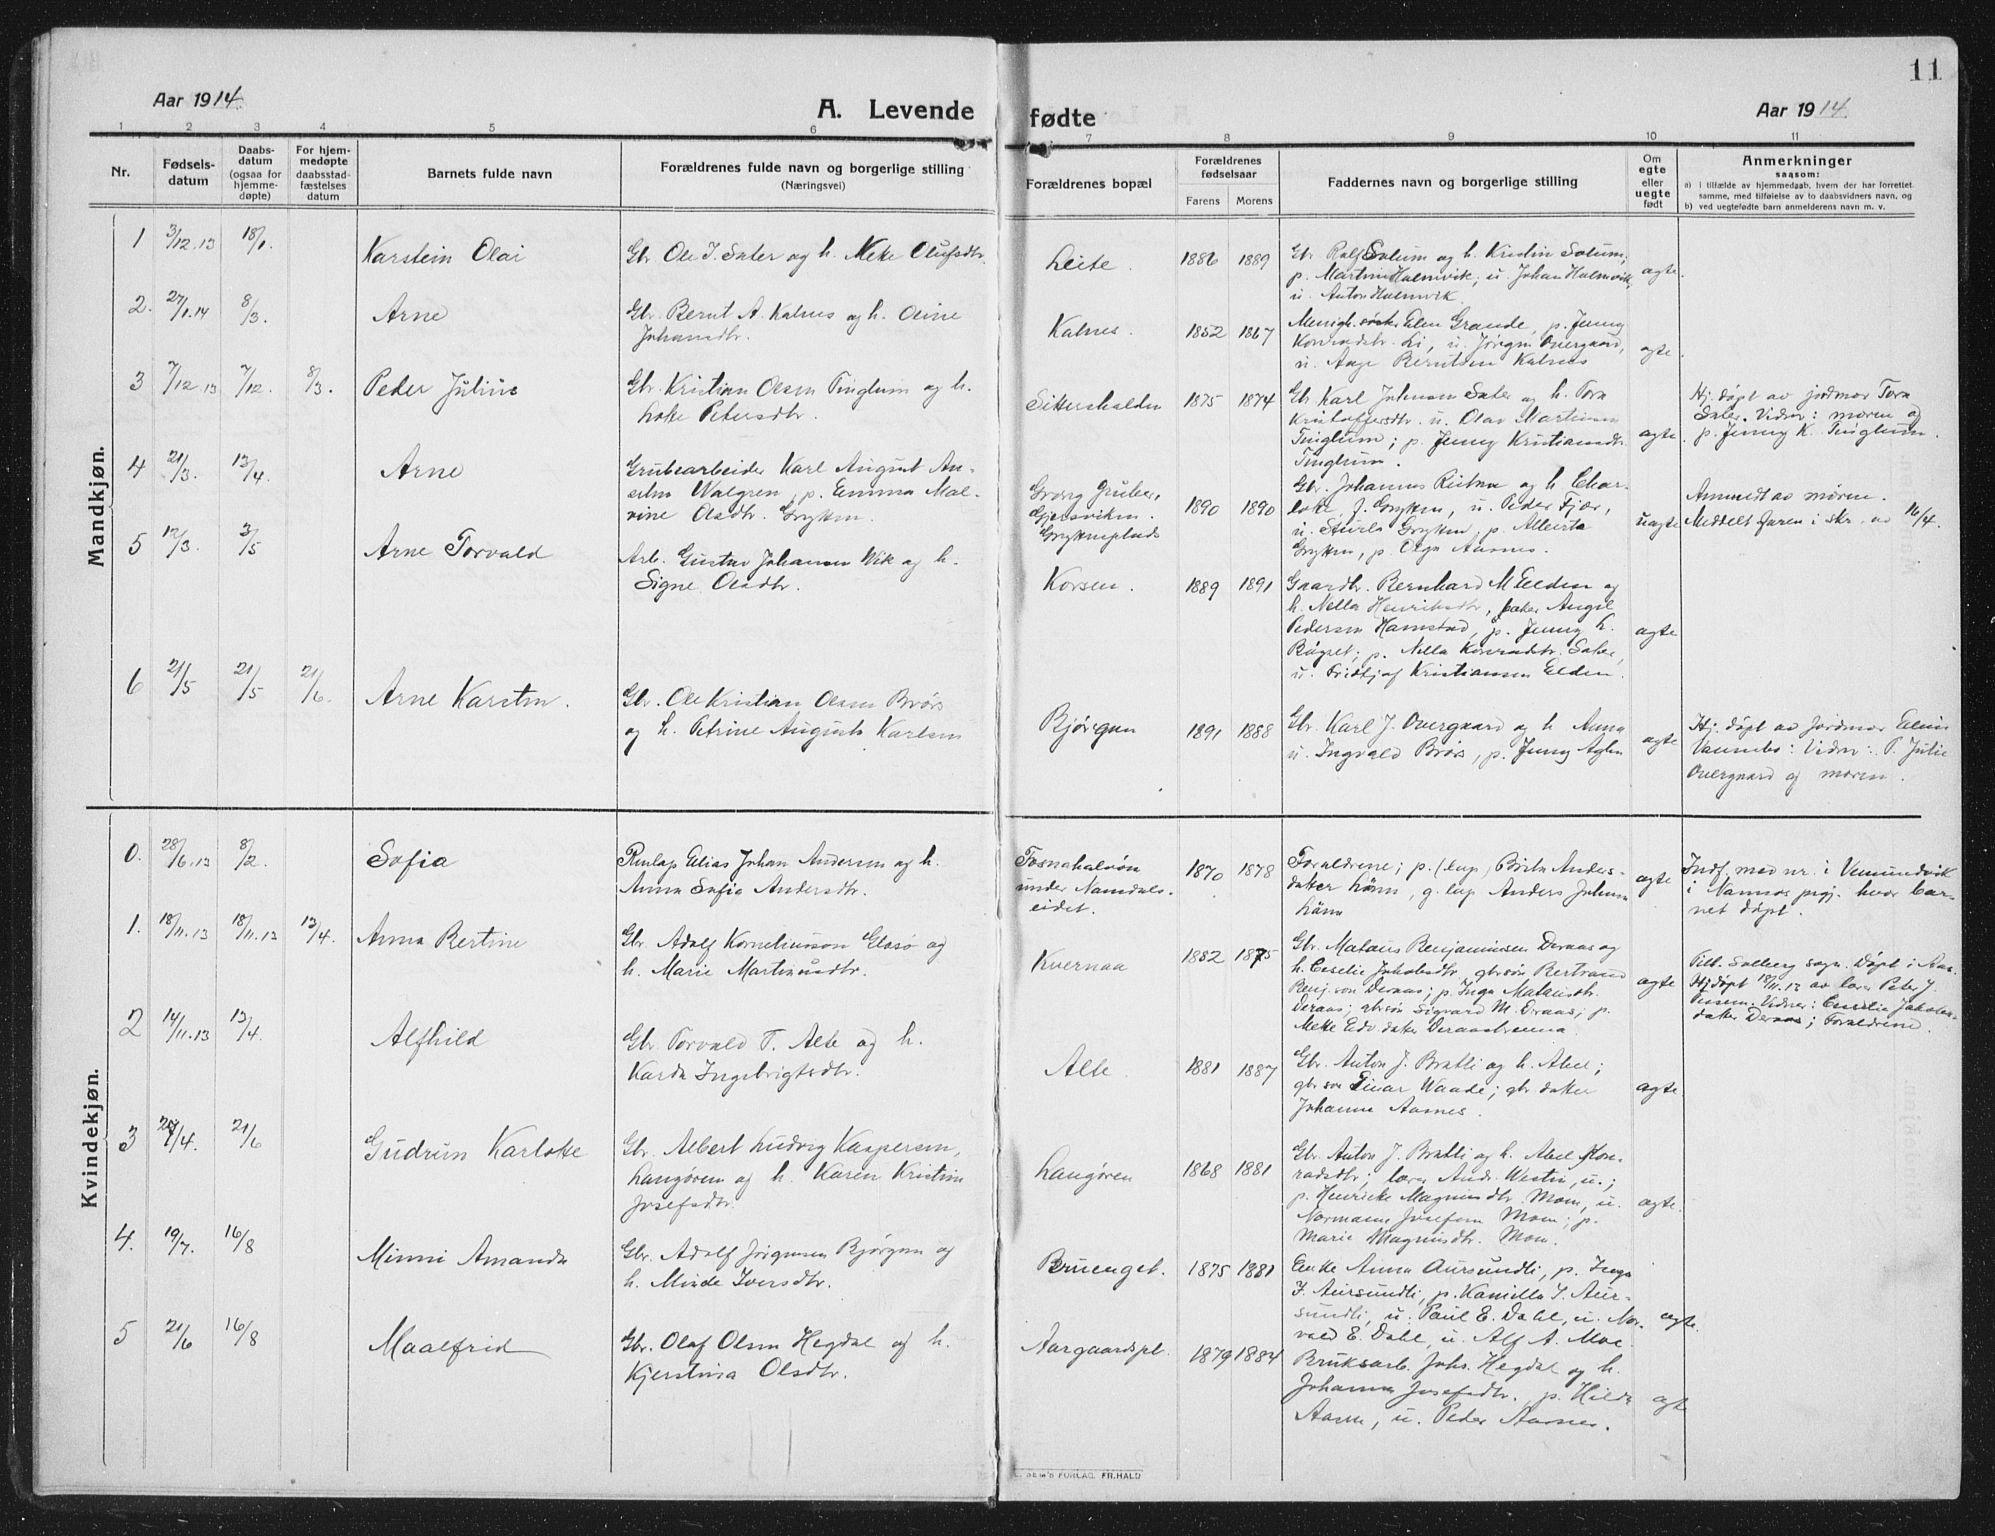 11
Aar 1914.
A. Levende
fødte
Aar 1914.
1 2 3 4 5 6 7 8 9 10 11
Nr.
Fødsels-
datum
Daabs-
datum
(ogsaa for
hjemme-
døpte)
For hjem-
medøpte
daabsstad-
fæstelses
datum
Barnets fulde navn
Forældrenes fulde navn og borgerlige stilling
(Næringsvei)
Forældrenes bopæl
Forældrenes
fødselsaar
Farens Morens
Faddernes navn og borgerlige stilling
Om
egte
eller
uegte
født
Anmerkninger
saasom:
a) I tilfælde av hjemmedaab, hvem der har forrettet
samme, med tilføielse av to daabsvidners navn, og
b) ved uegtefødte barn anmelderens navn m. v.
Mandkjøn.
1 3/12.13 18/1. Karstein Olai
Gbr. Ole J. Sater og h. Meke Olufsdtr.
Leite. 1886 1889
Gbr. Rolf Solum og h. Kristin Solum;
p. Martin Halmvik; u. Johan Halmvik,
u. Anton Halmvik.
ægte.
2. 27/1.14 8/3. Arne
Gbr. Bernt A. Kalnes og h. Oline
Johansdtr.
Kalnes. 1852 1867
Menigh.søster Elen Grande, p. Jenny
Konradsdtr. Li, u. Jörgen Overgaard,
u. Aage Berntsen Kalnes
ægte
3 7/12.13 7/12. 8/3. Peder Julius
Gbr. Kristian Olsen Tinglum og h.
Lotte Petersdtr.
Sitterhalden 1875 1874
Gb Karl Johnsen Sater og h. Tora
Kristoffersdtr. u. Olav Martinsen
Tinglum; p. Jenny Kristiansdtr.
Tinglum.
ægte
Hj. døpt av jordmor Tora
Sater. Vidner: moren og
p. Jenny K. Tinglum.
4 21/3. 13/4. Arne
Grubearbeider Karl August An-
selm Walgren, p. Emma Mal-
vine Olsdtr. Grytten.
Grong Gruber,
Gjersviken.
1890 1890
Gbr. Johannes h. Char-
lotte J. Grytten, u. Peder Fjær,
u. Sturla Grytten, p. Alberta
Grytten, p. Olga Aarnes.
uægte
Anmeldt av moren.
Meddelt faren i skr. av 16/4.
5 12/3. 3/5 Arne Torvald
Arb. Gustav Johansen Vik og h.
Signe Olsdtr.
Korsen. 1889 1891
Gaardbr. Bernhard M Elden og
h. Nella Henriksdtr, Angel
Pedersen Hamstad, p. Jenny h.
p. Nella Konradsdtr. Sater,
u. Fridtjof Kristiansen Elden.
ægte
6 21/5 21/5 21/6. Arne Karsten.
Gbr. Ole Kristian Olsen Brørs
og h. Petrine Augusta Karlsen
Bjørgan 1891 1888
Gbr. Karl J. Overgaard og h Anna
u. Ingvald Brørs, p. Jenny Aglen
ægte
Hj. døpt av jordmor Elen
Vannebo: Vidner: P. Julie
Overgaard og moren.
Kvindekjøn.
0. 28/6.13 8/2. Sofia
Renlap Elias Johan Andersen og h.
Anna Sofia Andersdtr.
Tosnahalvön
under Namdals-
eidet.
1870 1878
Forældrene; p. (lap) Anders-
datter Lånn, g. lap Anders Johnsen
Lånn
ægte
Indf. med nr. i Vemundvik
i Namsos prgj. hvor bar-
net døpt.
1. 18/11.13 18/11.13 13/4. Anna Bertine
Gbr. Adolf Korneliusson Glasø og
h. Marie Martinusdtr.
Kvernaa 1882 1875
Gbr. Mataus Benjaminsen Deraas og
h. Cecelie Jakobsdtr, gbrsøn Bertrand
Benj.son Deraas; p. Inga Matausdtr.
Deraas, gbrsøn Sigvard M. Deraas; p.
Meke Edv.datter Deraasbrenna.
ægte
Tilh. Solberg sogn. Døpt i
Hjdöpt 18/11.13 av lærer Peter J.
Vidner: Cecelia Jakobs-
datter Deraas; Forældrene.
2 14/11.13 13/4. Alfhild
Gbr. Torvald T. Alte og h.
Karda Ingebrigtsdtr.
Alte. 1881 1887
Gbr. Anton J. Bratli og h. Abel;
gbrson Einar Waade; gbr.datter
Johanna Aarnes.
ægte
3 /4. 21/6 Gudrun Karlotte
Gbr. Albert Ludvig Kaspersen,
Langøren og h. Karen Kristine
Josefsdtr.
Langøren 1868 1881
Gbr. Anton J. Bratli og h. Abel Kon-
radsdtr; lærer Andr. Westri, u.;
p. Henricke Magnusdtr. Mom, u.
Normann Josefsen Mom; p.
Marie Magnusdtr. Mom.
ægte.
4. 19/7. 16/8 Minni Amanda
Gbr. Adolf Jörgensen Bjørgan og
h. Minde Iversdtr.
Bruenget. 1875 1881
Enke Anna Aursundli, p. Inga
J. Aursundli, p. Kamilla I. Aur-
sundli, u. Paul E. Dahl, u. Nor-
vald E. Dahl, u. Alf A. Moe.
ægte.
5 21/6 16/8 Maalfrid
Gbr. Olaf Olsen Hegdal og h.
Kjerstina Olsdtr.
Aargaardspl. 1879 1884
Bruksarb. Johs. Hegdal og h.
Johanna Josefsdtr. p. Hilda
Aasen, u. Peder Aarnes.
ægte
FORLAG. FR.HALD